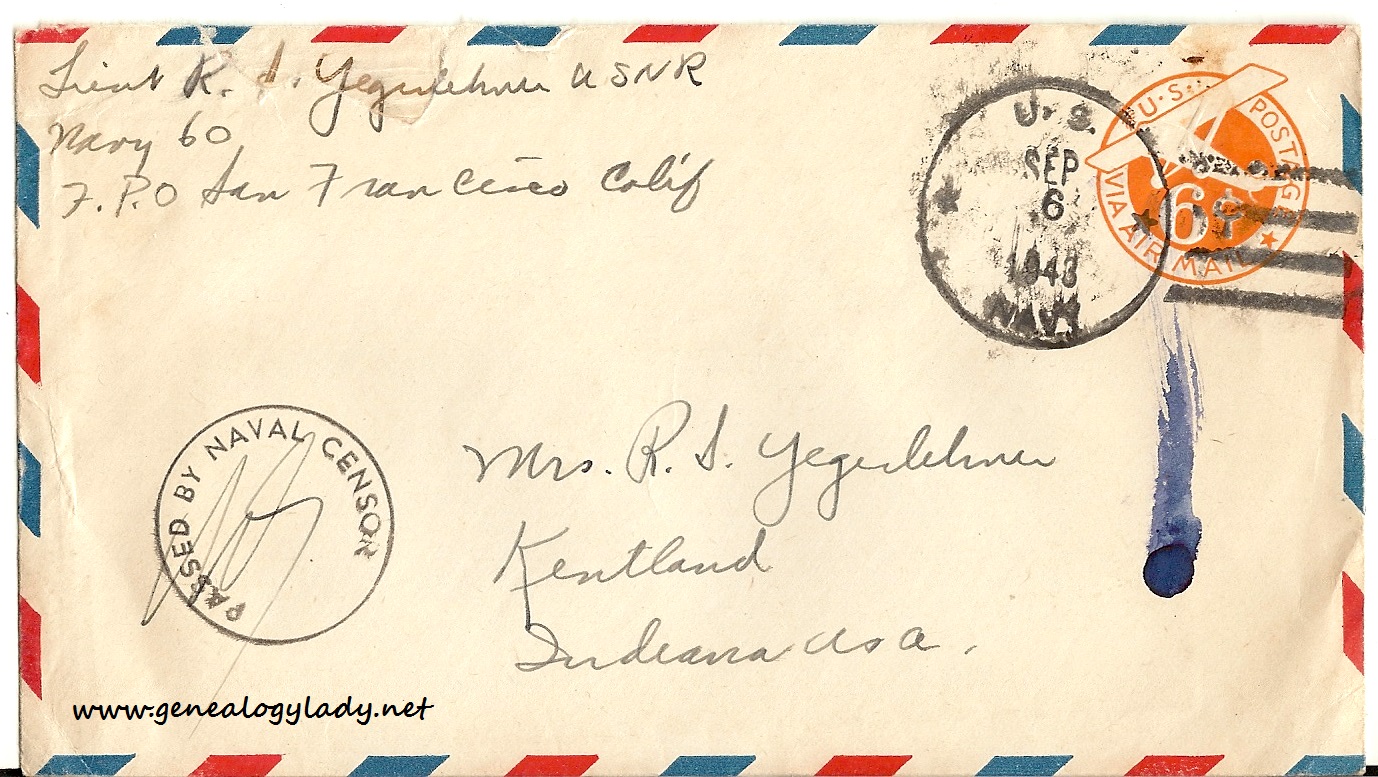 Lieut R. S. Yegerlehner USNR
Navy 60
F. P. O San Francisco Calif
U. S.
SEP
6
1943
NAVY
U.S. POSTAGE
6¢
VIA AIR MAIL
PASSED BY NAVAL CENSOR
Mrs. R. S. Yegerlehner
Kentland
Indiana USA.
www.genealogylady.net